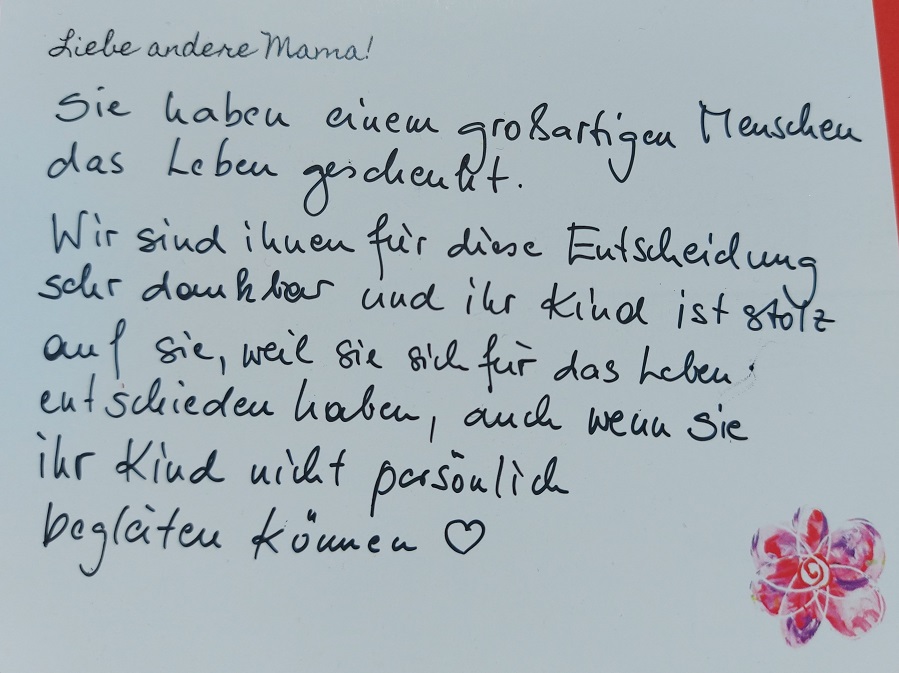 Liebe andere Mama!
Sie haben einem großartigen Menschen
das Leben geschenkt.
Wir sind ihnen für diese Entscheidung
sehr dankbar und ihr Kind ist stolz
auf sie, weil sie sich für das Leben
entschieden haben, auch wenn sie
ihr Kind nicht persönlich
begleiten können ♡